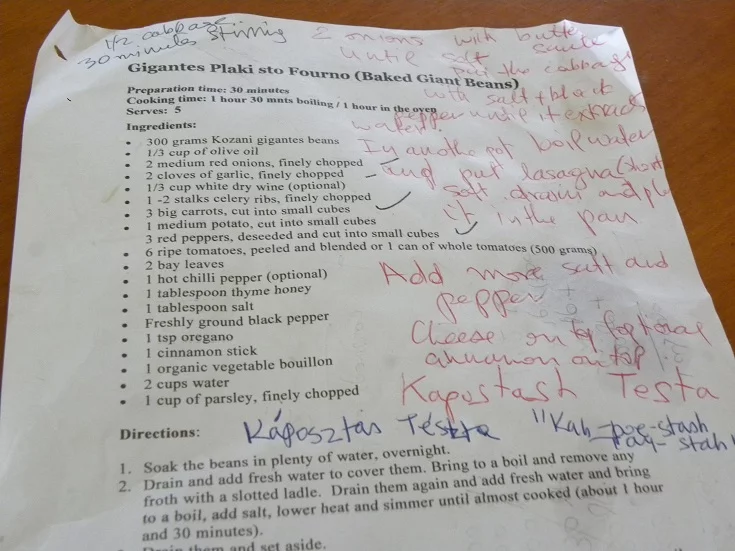 1/2 cabbage
30 minutes stirring
2 onions with butter
until soft
put the cabbage
with salt + black
pepper until it extracts
water.
In another pot boil water
and put lasagna (short
soft, drain and
it in the pan
Add more salt and
pepper
Cheese on top
cinnamon on top
Kapostash Testa
Káposztás Tészta "Kah-poe-stash
Gigantes Plaki sto Fourno (Baked Giant Beans)
Preparation time: 30 minutes
Cooking time: 1 hour 30 mnts boiling / 1 hour in the oven
Serves: 5
Ingredients:
• 300 grams Kozani gigantes beans
• 1/3 cup of olive oil
• 2 medium red onions, finely chopped
• 2 cloves of garlic, finely chopped
• 1/3 cup white dry wine (optional)
• 1 -2 stalks celery ribs, finely chopped
• 3 big carrots, cut into small cubes
• 1 medium potato, cut into small cubes
3 red peppers, deseeded and cut into small cubes
• 6 ripe tomatoes, peeled and blended or 1 can of whole tomatoes (500 grams)
• 2 bay leaves
• 1 hot chilli pepper (optional)
• 1 tablespoon thyme honey
• 1 tablespoon salt
• Freshly ground black pepper
• 1 tsp oregano
• 1 cinnamon stick
• 1 organic vegetable bouillon
• 2 cups water
• 1 cup of parsley, finely chopped
Directions:
1. Soak the beans in plenty of water, overnight.
2. Drain and add fresh water to cover them. Bring to a boil and remove any
froth with a slotted ladle. Drain them again and add fresh water and bring
to a boil, add salt, lower heat and simmer until almost cooked (about 1 hour
and 30 minutes).
Drain them and set aside.